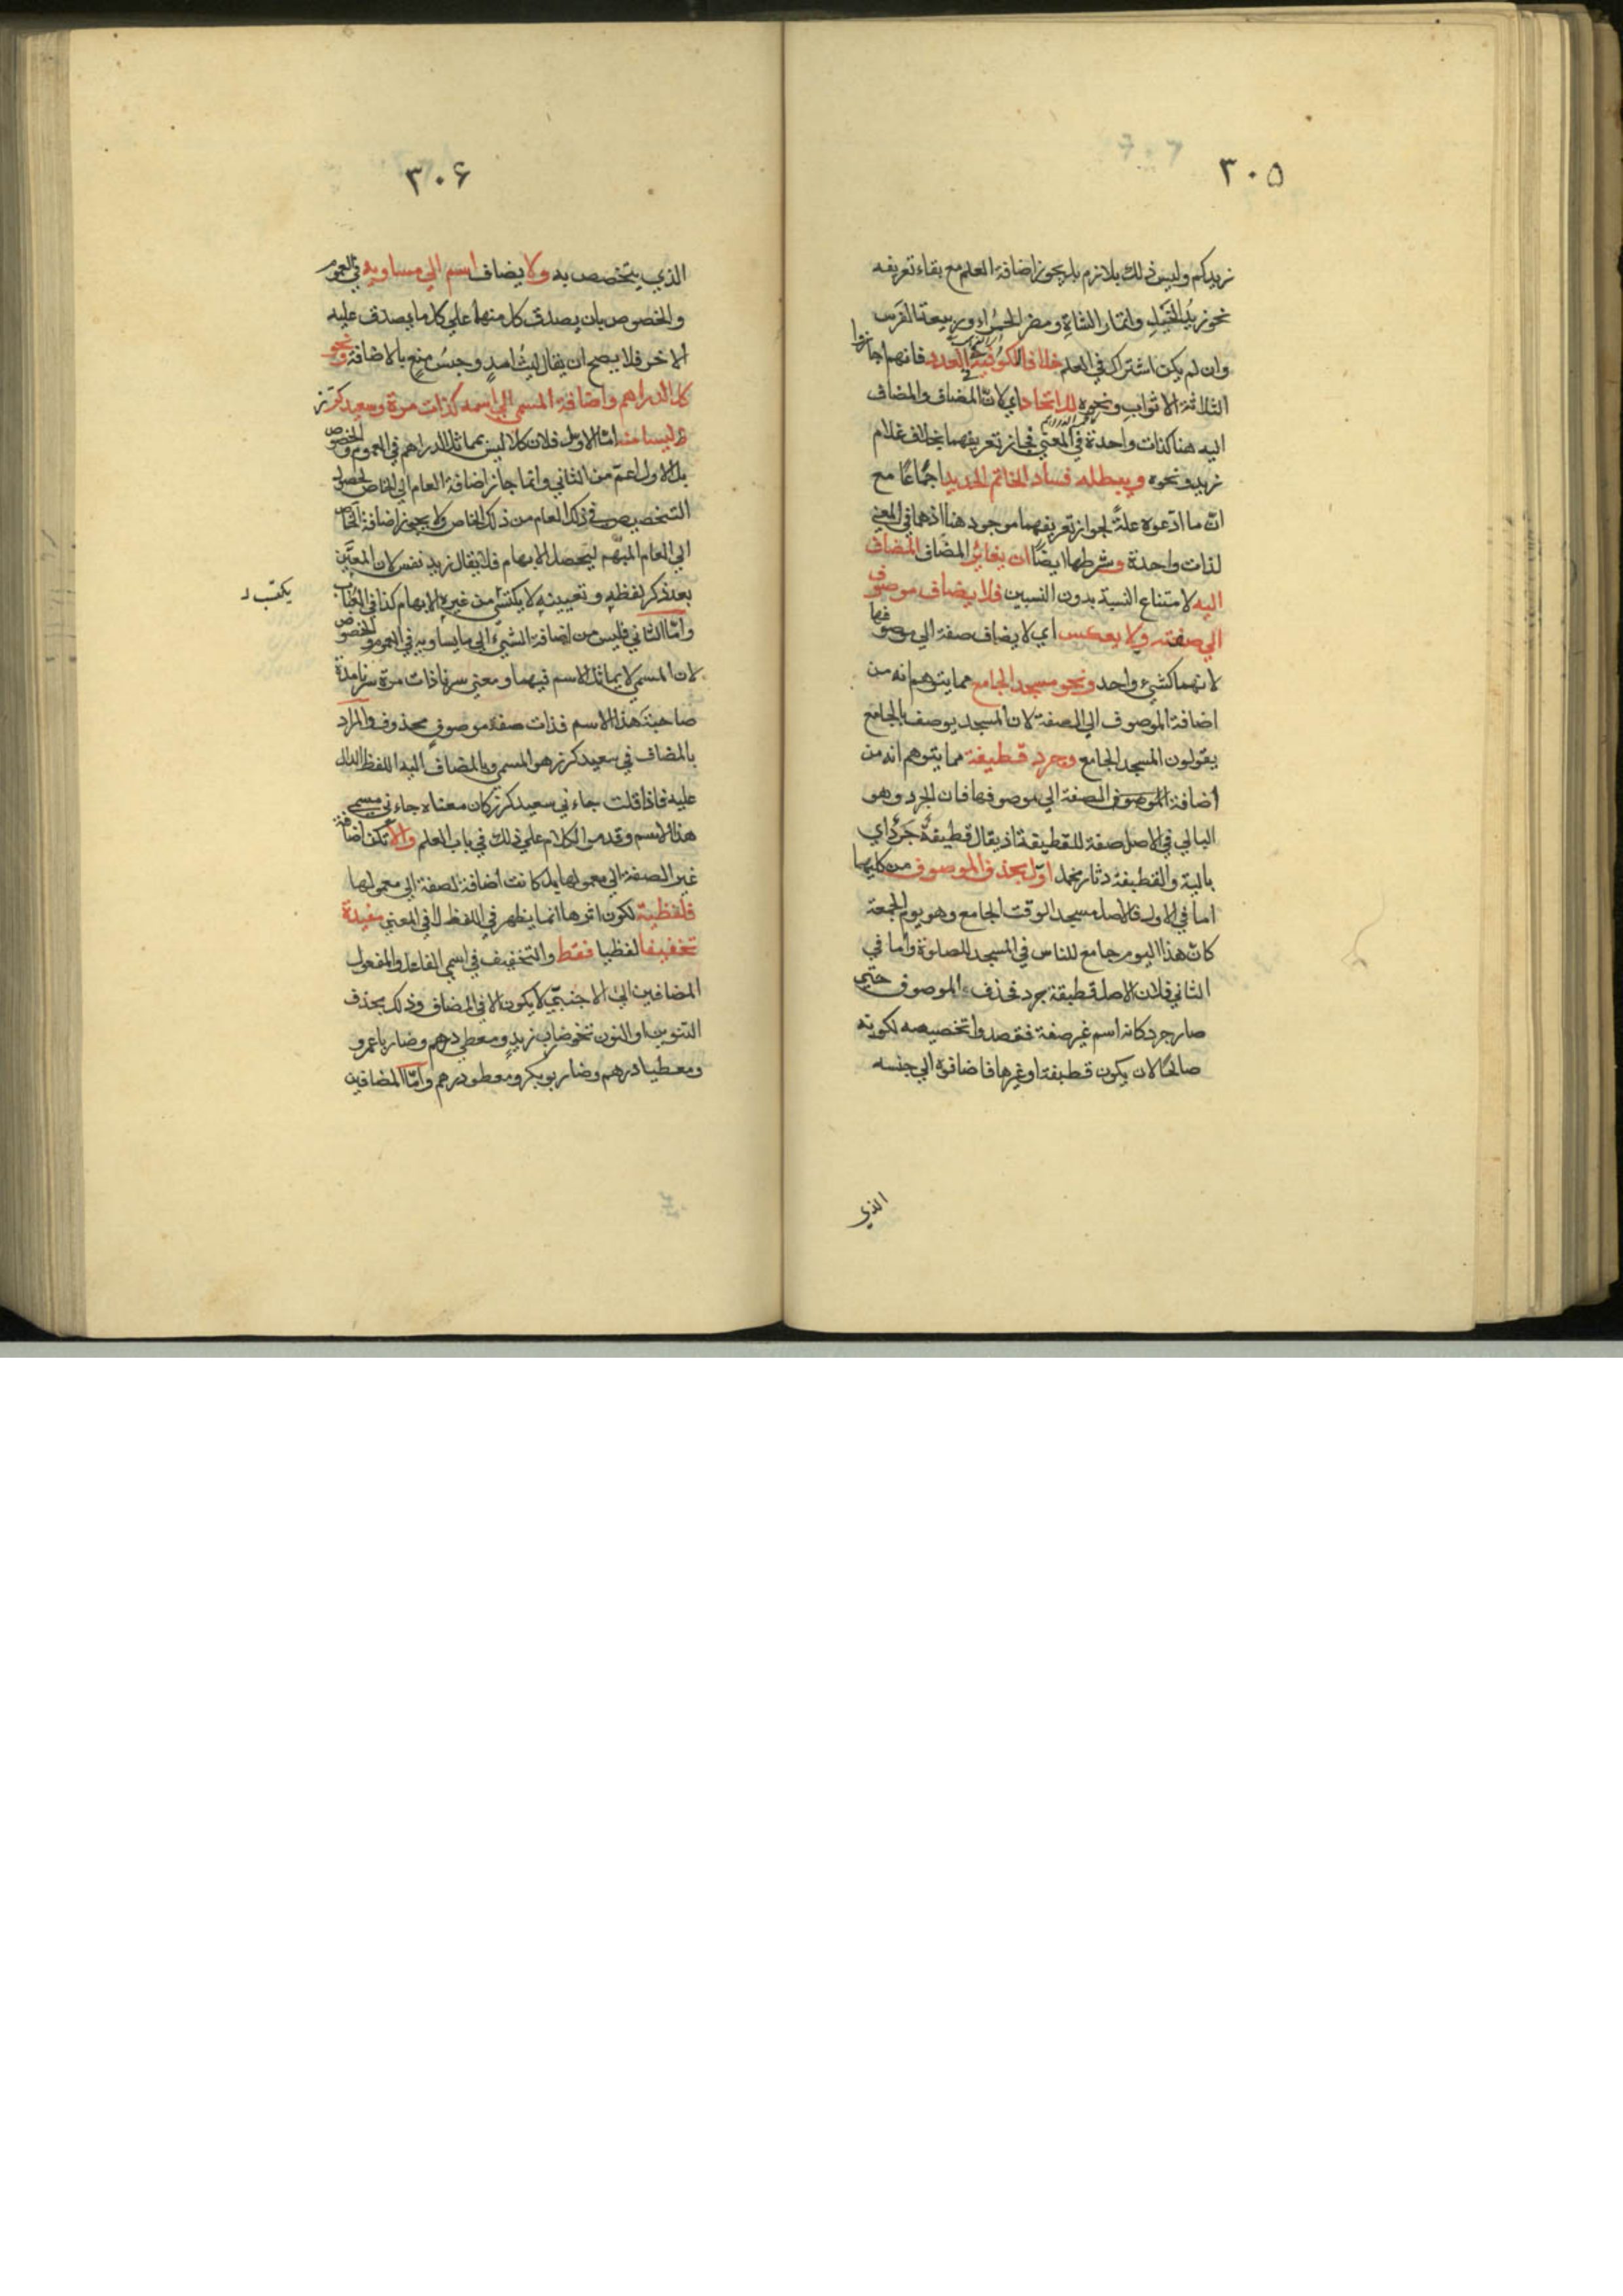 ٣٠٥
زيدكم وليس ذلك بلازم بل يجوز اضافة العلم مع بقاء تعريفه
نحو زيدُ الخيلِ وانمار الشاةِ ومضر الحمراء وربيعة الفَرَس
وان لم يكن اشتراك في العلم خلافا لكوفية في العدد فانهم اجازوا
الثلاثة الاثوابِ ونحوه للاتحاد اي لانّ المضاف والمضاف
اليه هنا كذات واحدة في المعني فجاز تعريفهما بخلاف غلام
زيد ونحوه ويبطله فساد الخاتم الحديد اجماعًا مع
انّ ما ادعوه علةً لجواز تعريفهما موجود هنا اذ هما في المعني
لذات واحدة وشرطها ايضًا ان يغايرَ المضاف المضاف
اليه لامتناع النسبة بدون النسبين فلا يضاف موصوف
الي صفته ولا يعكس اي لا يضاف صفة الي موصوفها
لانهما كشيء واحد ونحو مسجد الجامع مما يتوهم انه من
اضافة الموصوف الي الصفة لان المسجد يوصف بالجامع
يقولون المسجد الجامع وجرد قطيفة مما يتوهم انه من
اضافة الموصوف الصفة الي موصوفها فان الجرد وهو
البالي في الاصل صفة للقطيفة اذ يقال قطيفةٌ جَرْدٌ اي
بالية والقطيفة دثار مخمل اوّل بحذف الموصوف من كليهما
اما في الاول فالاصل مسجد الوقت الجامع وهو يوم الجمعة
كان هذا اليوم جامع للناس في المسجد للصلوة واما في
الثاني فلان الاصل قطيفة جرد فحذف الموصوف حتي
صار جرد كانه اسم غير صفة فقصدوا تخصيصه لكونه
صالحًا لان يكون قطيفة او غيرها فاضافوه الي جنسه
الذي
٣٠۶
الذي يتخصص به ولا يضاف اسم الي مساويه في العموم
والخصوص بان يصدق كل منهما علي كل ما يصدق عليه
الاخر فلا يصح ان يقال ليثُ اسدٍ وحبسُ منعٍ بالاضافة ونحو
كل الدراهم واضافة المسمي الي اسمه كذات مرة وسعيد كرز
ليسا منه امّا الاول فلان كلا ليس بمماثل الدراهم في العموم والخصوص
بل الاول اعمّ من الثاني وانما جاز اضافة العام الي الخاص لحصول
التخصيص في ذلك العام من ذلك الخاص ولا يجوز اضافة الخاص
الي العام المبهم ليحصل الابهام فلا يقال زيد نفس لان المعيَّن
بعد ذكر لفظهِ وتعيينهِ لا يكتسي من غيره الابهام كذا في اللباب
يكتسب
وامّا الثاني فليس من اضافة الشيء الي ما يساويه في العموم والخصوص
لان المسمي لا يماثل الاسم فيهما ومعني سرنا ذات مرة سرنا مدة
صاحبةَ هذا الاسم فذات صفة موصوفٍ محذوف والمراد
بالمضاف في سعيد كرز هو المسمي وبالمضاف اليه اللفظ الدال
عليه فاذا قلت جاءني سعيد كرز كان معناه جاءني مسمي
هذا الاسم وقد مر الكلام علي ذلك في باب العلم والا تكن اضافة
غير الصفة الي معمولها بل كانت اضافة الصفة الي معمولها
فلفظية لكون اثرها انما يظهر في اللفظ لا في المعني مفيدة
تخفيفا لفظيا فقط والتخفيف في اسمي الفاعل والمفعول
المضافين الي الاجنبيّ لا يكون الا في المضاف وذلك بحذف
التنوين او النون نحو ضاربُ زيدٍ ومعطي درهم وضاربا عمرو
ومعطيا درهم وضاربو بكر ومعطو درهم وامّا المضافين